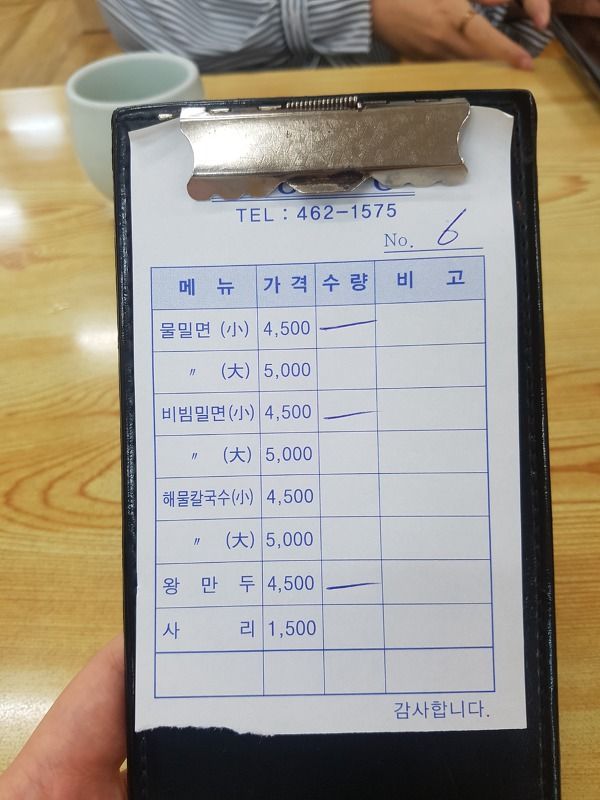 TEL : 462-1575
No. 6
메 뉴 가 격 수 량 비 고
물밀면 (小) 4,500 一
〃 (大) 5,000
비빔밀면(小) 4,500 一
〃 (大) 5,000
해물칼국수(小) 4,500
〃 (大) 5,000
왕 만 두 4,500 一
사 리 1,500
감사합니다.